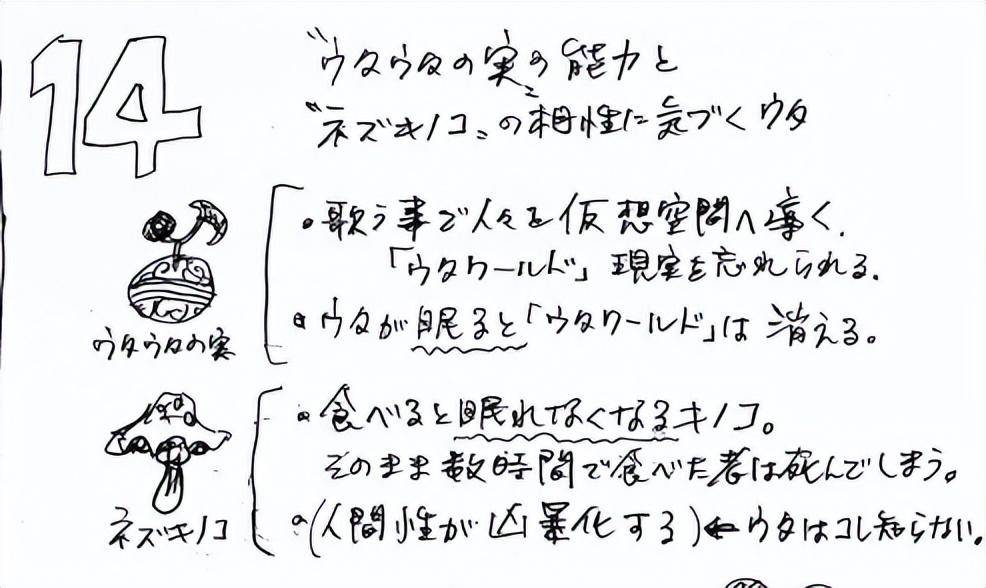 14
"ウタウタの実"の能力と
"ネズキノコ"の相性に気づくウタ
。歌う事で人々を仮想空間へ導く.
「ウタワールド」現実を忘れられる.
。ウタが眠ると「ウタワールド」は消える。
ウタウタの実
。食べると眠れなくなるキノコ。
そのまま数時間で食べた者は死んでしまう。
。(人間性が凶暴化する)←ウタはコレ知らない。
ネズキノコ